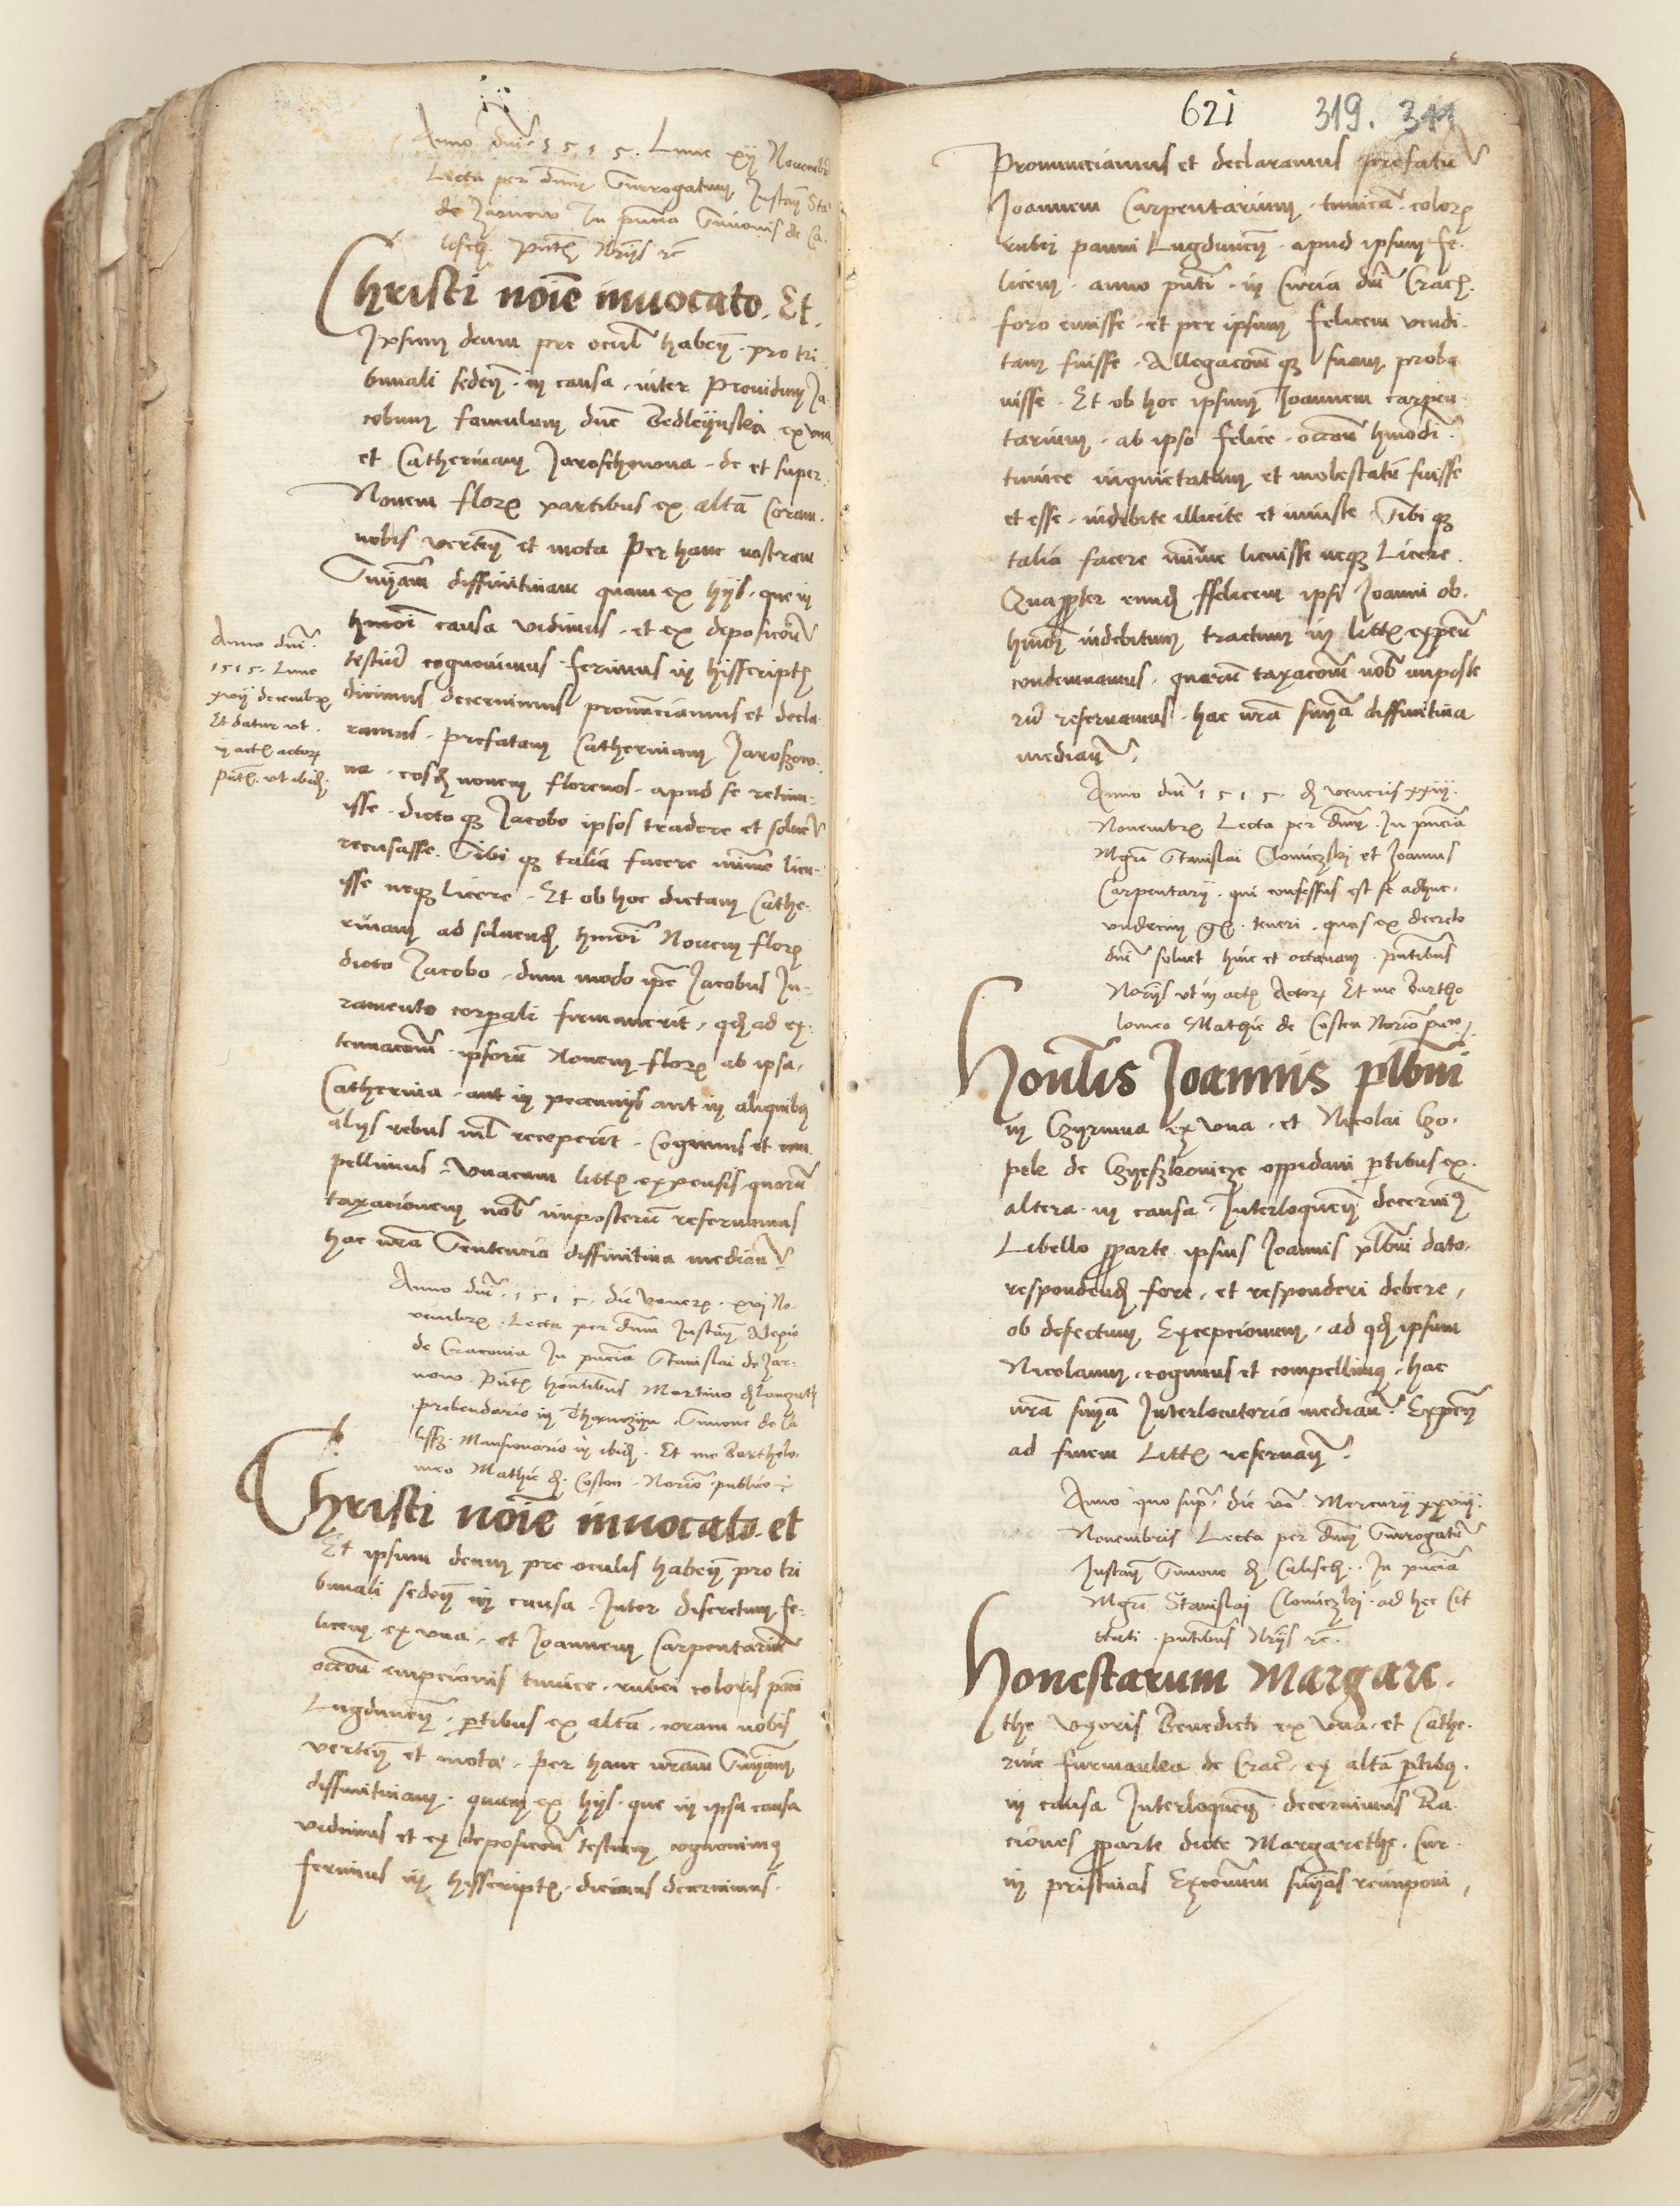 Anno dni 1515. Lune xij Nouembr
Lecta per dnm Surrogatum Instan Sta
de Zarnow In pncia Simonis de Ca-
lisch. pntt Nrijs rc
Christi noie inuocato. Et.
Ipsum deum pre ocul haben. pro tri
bunali seden. in causa. inter Prouidum Ja-
cobum famulum dne Bedleynska ex vna
et Catherinam Jaroschowna. de et super.
Nouem flor partibus ex altā Coram.
nobis verten et mota Per hanc nostram
Snīam diffinitiuam quam ex hijs. que in
hmoi causa vidimus. et ex deposicōn
testiū cognouimus. ferimus in hisscript
dicimus decernimus pronunciamus et decla
ramus. prefatam Catherinam Jaroschow.
na. eosd nouem florenos. apud se retinu-
isse. dicto qz Jacobo ipsos tradere et soluer
recusasse. Sibi qz talia facere minime licu-
isse neqz Licere. Et ob hoc dictam Cathe-
rinam ad soluend hmoi Nouem flor
dicto Jacobo. dum modo ipe Jacobus Ju-
ramento corporali firmauerit, qd ad ex-
tenuacōm. ipsorū Nouem flor ab ipsa,
Catherina. aut in pecunijs aut in aliquibus
alijs rebus nil receperit. Cogimus et com
pellimus. Vnacum litt expensis quarū
taxacionem nob imposterū reseruamus
hac nrā Sentencia diffinitiua median
Anno dni. 1515. die Vener. xvj No-
uembr. Lecta per dnm Instan Alexio
de Cracouia In pncia Stanislai de Zar-
now. Pntt honlibus Martino d
prebendario in Simone de Ca
lissz. Mansionario in ibid. Et me Bartholo-
meo Mathie d. Costen. Norio publico
Anno dni.
1515. Lune
xvij decembr
Et datur vt.
in actt actor
pntt. vt ibid.
Christi noie inuocato. et
Et ipsum deum pre oculis haben pro tri
bunali seden in causa. Inter discretum fe-
licem ex vna. et Joannem Carpentariū
occōn empcionis tunice. rubei coloris pāni
Lugdunen. ptibus ex altā. coram nobis
verten et mota. per hanc nrām Snīam
diffinitiuam. quam ex hijs. que in ipsa causa
vidimus et ex deposicōn testium cognouimus
ferimus in hisscript. dicimus decernimus.
621 319. 311
Pronunciamus et declaramus prefatū
Joannem Carpentarium. tunicā. color
rubei panni Lugdunen. apud ipsum fe-
licem. anno pnti. in Curia dni Crach.
foro emisse. et per ipsum felicem vendi-
tam fuisse. Allegacōm qz suam proba
uisse. Et ob hoc ipsum Joannem carpen
tarium. ab ipso felice. occōn hmodi.
tunice inquietatum et molestatū fuisse
et esse. indebite illicite et iniuste. Sibi qz
talia facere minime licuisse neqz Licere.
Quapropter eund ffelicem ipsi Joanni ob.
hmōi indebitum tractum in litt expen
condemnamus. quarū taxacōm nob imposte
rū reseruamus. hac nrā snīa diffinitiua
median
Anno dni 1515. d veneris xxiij.
Nouembr Lecta per dnm. In pncia
Mgri Stanislai Clowiczski et Joannis
Carpentarij. qui confessus est se adhuc.
vndecim gr. teneri. quos ex decreto
dni soluet hinc et octauam. pntibus
Norijs vt in actt Actor Et me Bartho
lomeo Mathie de Costen Norio
Honlis Joannis plbni
in Czyrnna ex vna. et Nicolai Czo.
pek de oppidani ptibus ex.
altera. in causa. Interloquen decernim
Libello pparte ipsius Joannis plbni dato.
respondend fore, et responderi debere,
ob defectum Excepcionum. ad qd ipsum
Nicolaum. cogimus et compellimus. hac
nrā snīa Interlocutoria median. Expen
ad finem Litt reseruan.
Anno quo sup. die vo. Mercurij xxviij.
Nouembris Lecta per dnm Surrogatū
Instan Simone d Calisch. In pncia
Mgri Stanislai Clowiczski. ad hec Cit
ttati. pntibus Nrijs rc.
Honestarum Margare.
the vxoris Benedicti ex vna. et Cathe.
rine furmanka de Crac. ex altā ptibus.
in causa Interloquen. decernimus Ra.
ciones pparte dicte Margarethe. Cur
in pristinas Excōnum snīas reimponi,